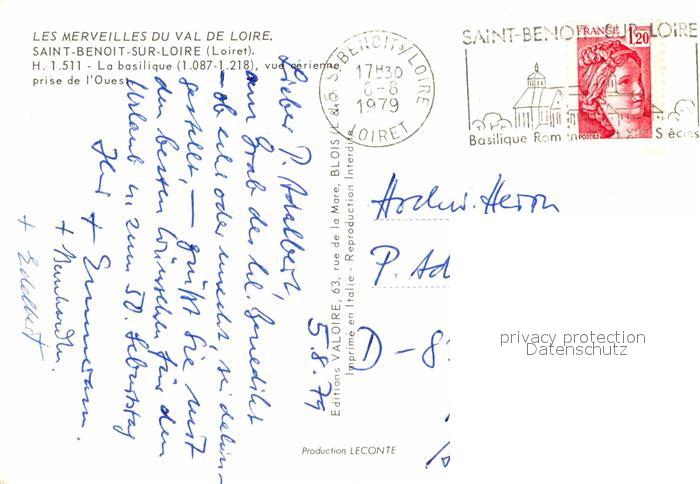 LES MERVEILLES DU VAL DE LOIRE.
SAINT-BENOIT-SUR-LOIRE (Loiret).
H. 1.511 - La basilique (1.087-1.218), vue aérienne
prise de l'Ouest
45 St BENOIT S/ LOIRE
17H30
8-8
1979
LOIRET
SAINT-BENOIT-SUR-LOIRE
Basilique Romane Siècles
FRANCE
1,20
POSTES
5.8.79
Lieber P. Adalbert,
am Grab des hl. Benedikt
– ob echt oder unecht, sei dahin-
gestellt, – grüßt Sie mit
den besten Wünschen für den
Urlaub u. zum 50. Geburtstag
Ihr + Emmeram.
+ Bernhardin.
+ Edelbert
Editions VALOIRE, 63, rue de la Mare, BLOIS
Imprimé en Italie - Reproduction Interdite
Hochw. Herrn
P. Ad
D-8
privacy protection
Datenschutz
Production LECONTE